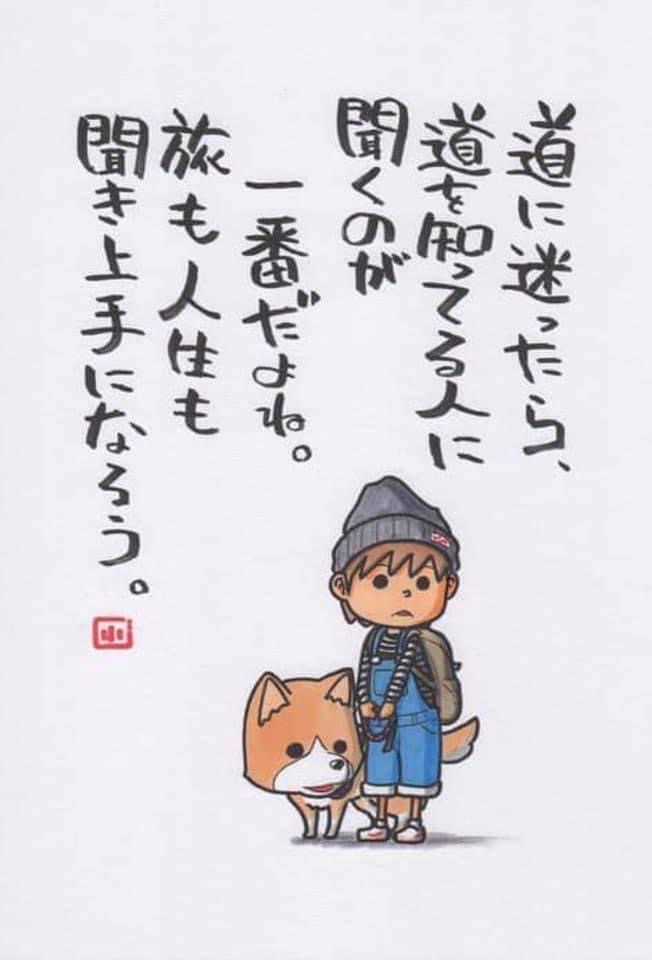 道に迷ったら、
道を知ってる人に
聞くのが
一番だよね。
旅も人生も
聞き上手になろう。